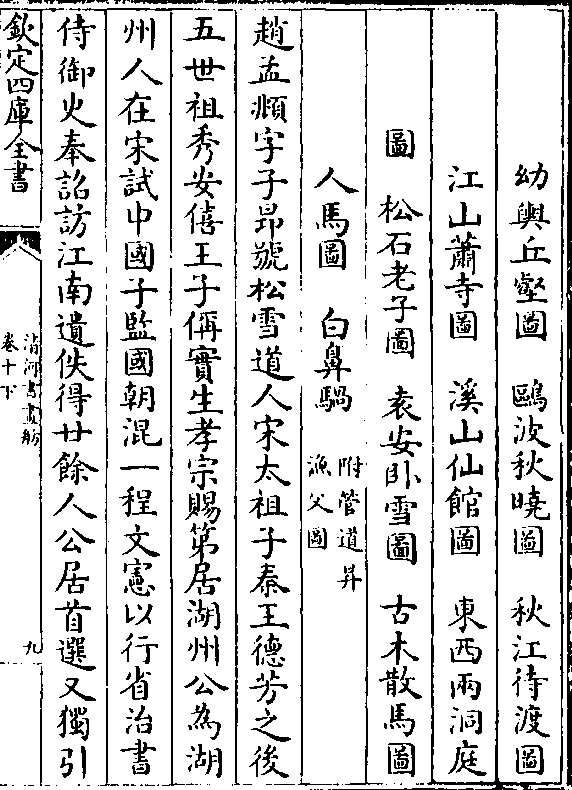 幼輿丘壑圖　鷗波秋曉圖　秋江待渡圖
江山蕭寺圖　溪山仙館圖　東西兩洞庭
圖　松石老子圖　袁安卧雪圖　古木散馬圖
人馬圖　白鼻騧　附管道昇
漁父圖
趙孟頫字子昻號松雪道人宋太祖子秦王德芳之後
五世祖秀安僖王子偁實生孝宗賜第居湖州公為湖
州人在宋試中國子監國朝混一程文憲以行省治書
侍御火奉詔訪江南遺佚得廿餘人公居首選又獨引
欽定四庫全書
清河書畫舫
卷十下
九